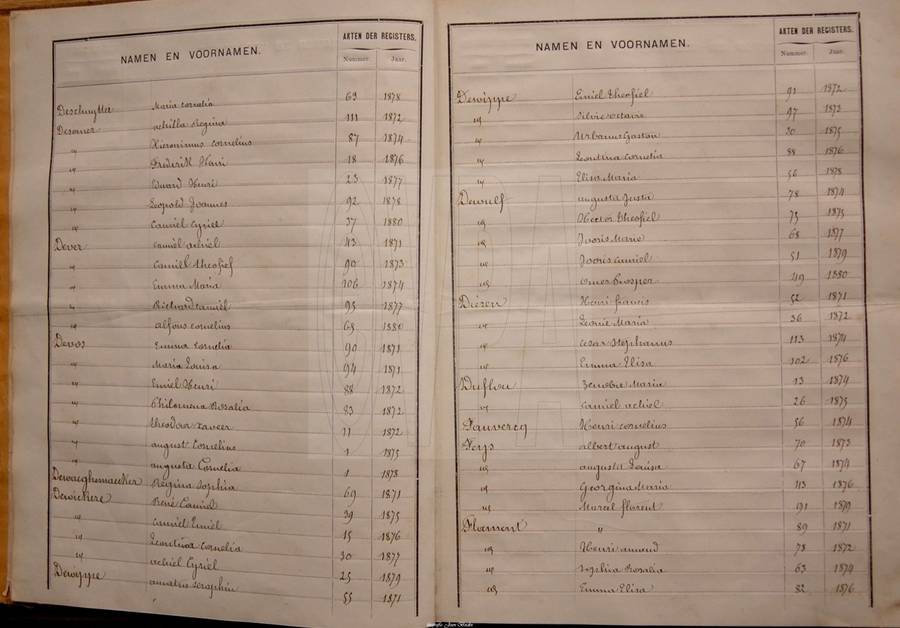 NAMEN EN VOORNAMEN. AKTEN DER REGISTERS.
Nummer. Jaar.
Deschuytter Maria Cornelia 63 1878
Desomer achilla Regina 111 1872
" Hieronimus Cornelius 87 1874
" Frederik Henri 18 1876
" Eduard Henri 23 1877
" Leopold Joannes 92 1878
" Camiel Cyriel 37 1880
Dever Camiel achiel 43 1871
" Camiel theofiel 90 1873
" Emma Maria 106 1874
" Richard Camiel 95 1877
" alfons cornelius 65 1880
Devos Emma Cornelia 90 1871
" Maria Louisa 94 1871
" Emiel Henri 88 1872
" Philomena Rosalia 83 1872
" theodoor Xaveer 11 1872
" august Cornelius 1 1875
" augusta Cornelia 1 1878
Dewaeghemaecker Regina Sophia 69 1871
Dewichere René Camiel 39 1875
" Camiel Emiel 15 1876
" Leontina Cornelia 30 1877
" achiel Cyriel 25 1879
Dewyppe amatus seraphin 55 1871
NAMEN EN VOORNAMEN. AKTEN DER REGISTERS.
Nummer. Jaar.
Dewyppe Emiel theofiel 91 1872
" Silvie octavie 97 1873
" Urbanus Gaston 20 1875
" Leontina Cornelia 88 1876
" Elisa Maria 56 1878
Dewulf augusta Justa 78 1874
" Hector theofiel 75 1875
" Jooris Marie 68 1877
" Jooris Camiel 51 1879
" Omer Prosper 49 1880
Diezen Henri francis 52 1871
" Leonie Maria 36 1872
" Cesar Stephanus 113 1874
" Emma Elisa 102 1876
Duflou Zenobie Maria 13 1874
" Camiel achiel 26 1875
Fauvercq Henri cornelius 56 1874
Feys albert august 70 1873
" augusta Louisa 67 1874
" Georgina Maria 113 1876
" Marcel florent 91 1879
Flamont " 89 1871
" Henri amand 78 1872
" Sophia Rosalia 63 1874
" Emma Elisa 82 1876